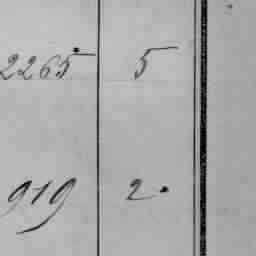 2265 5
919 2.